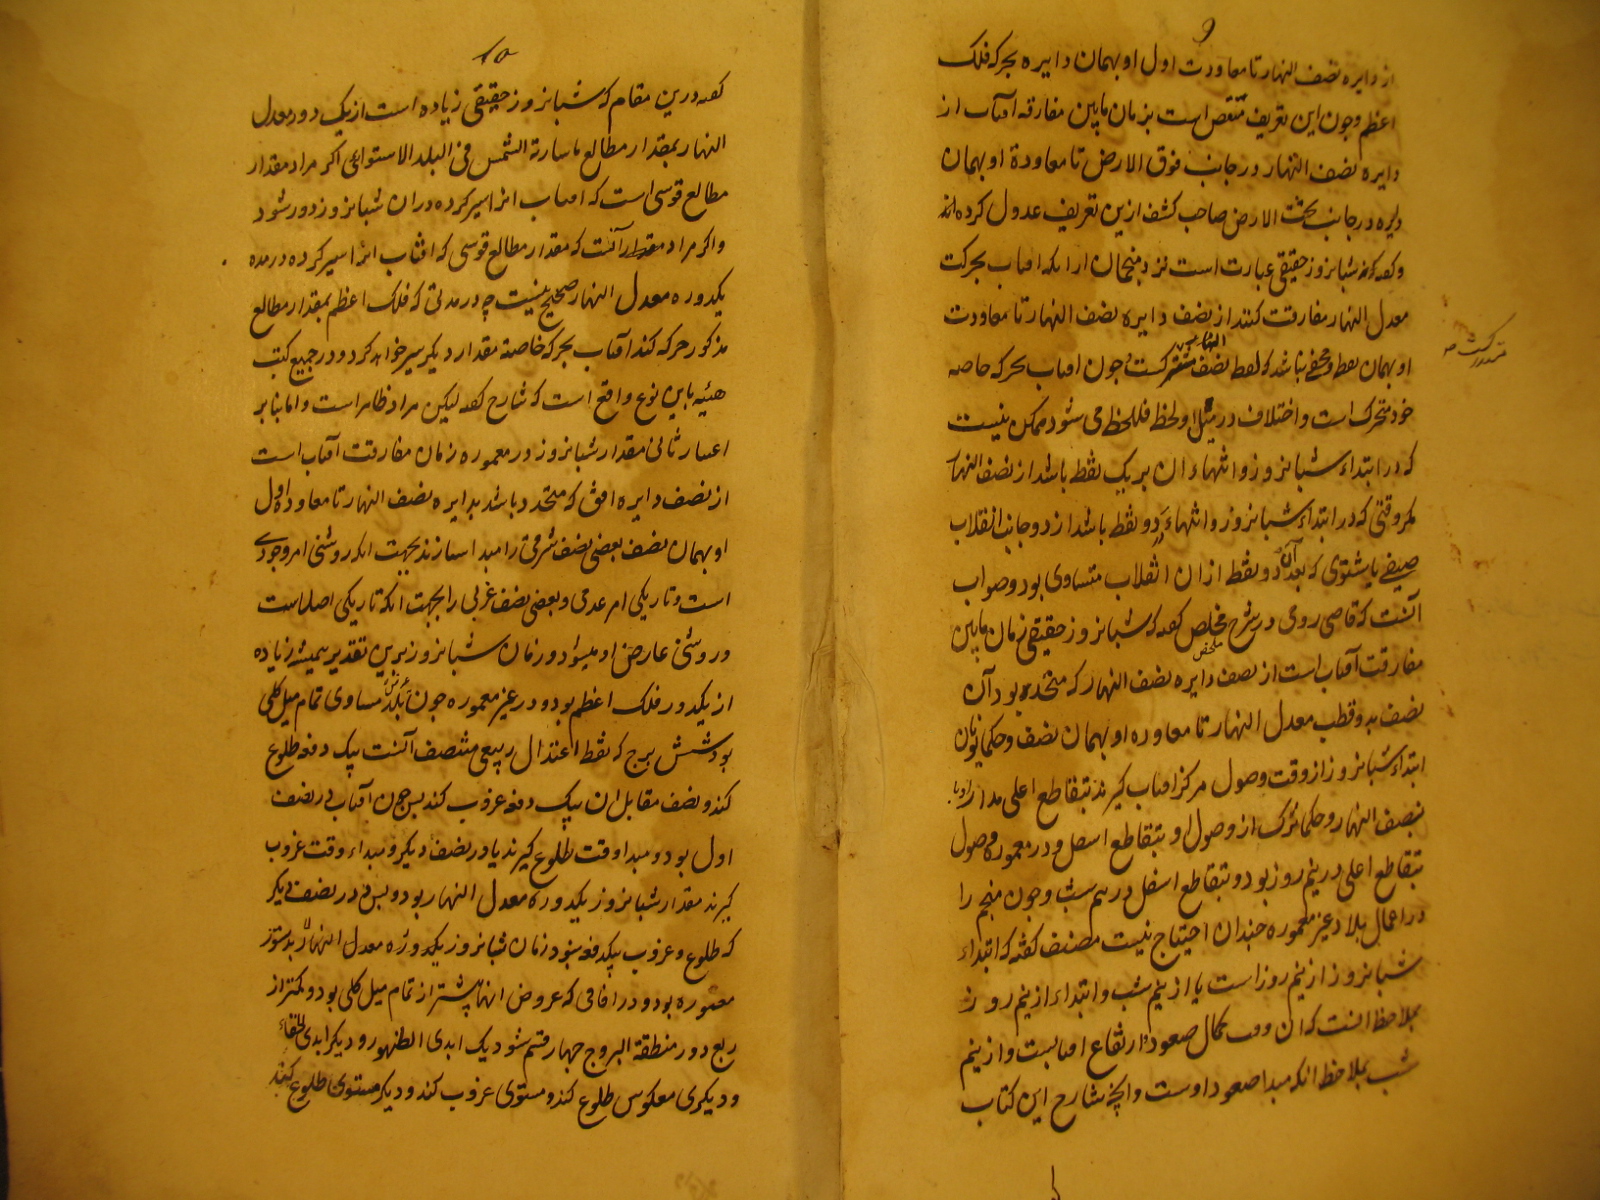 ۹
از دایره نصف النهار تا معاودت اول او بهمان دایره بحرکه فلک
اعظم وچون این تعریف منتقض است بزمان مابین مفارقه آفتاب از
دایره نصف النهار در جانب فوق الارض تا معاودة او بهمان
دایره در جانب تحت الارض صاحب کشف ازین تعریف عدول کرده اند
وکفته که شبانروز حقیقی عبارت است نزد منجمان از انکه افتاب بحرکت
معدل النهار مفارقت کند از نصف دایره نصف النهار تا معاودت
او بهمان نقطه ومخفی نباشد که لفظ نصف النهار مشترکست چون افتاب بحرکه خاصه
خود متحرک است واختلاف در میل او لحظ فلحظ می شود ممکن نیست
که در ابتداء شبانروز وانتهاء ان بر یک نقطه باشد از نصف النهار
مکر وقتی که در ابتداء شبانروز وانتهاء بر دو نقطه باشد از دو جانب انقلاب
صیفی یا شتوی که بعد آن دو نقطه از ان انقلاب متساوی بود وصواب
آنست که قاضی رومی در شرح مخلص کفته که شبانروز حقیقی زمان مابین
ملخص
مفارقت آفتاب است از نصف دایره نصف النهار که متحده بود آن
نصف بدو قطب معدل النهار تا معاوده او بهمان نصف وحکمای یونان
ابتداء شبانروز از وقت وصول مرکز افتاب کیرند بتقاطع اعلی مدار او با
بنصف النهار وحکمای ترک از وصول او بتقاطع اسفل ودر معموره وصول
بتقاطع اعلی در نیم روز بود وبتقاطع اسفل در نیم شب وچون منجم را
در اعمال بلاد غیر معموره چندان احتیاج نیست مصنف کفته که ابتداء
شبانروز از نیم روز است یا از نیم شب وابتداء از نیم روز
بملاحظه انست که ان وقت کمال صعود وارتفاع افتابست واز نیم
شب بملاحظه انکه مبدا صعود اوست وانچه شارح این کتاب
۱۰
کفته درین مقام که شبانروز حقیقی زیاده است از یک دور معدل
النهار بمقدار مطالع ماسارته الشمس فی البلد الاستوایی اکر مراد مقدار
مطالع قوسی است که افتاب انرا سیر کرده در ان شبانروز دور شود
واکر مراد مقدار آنست که مقدار مطالع قوسی که افتاب انرا سیر کرده در مده
یکدوره معدل النهار صحیح نیست چه در مدتی که فلک اعظم بمقدار مطالع
مذکور حرکه کند آفتاب بحرکه خاصه مقدار دیکر سیر خواهد کرد ودر جمیع کتب
هیئه باین نوع واقع است که شارح کفته لیکن مراد ظاهر است واما بنابر
اعتبار ثانی مقدار شبانروز در معموره زمان مفارقت آفتاب است
از نصف دایره افق که متحدد باشد بدایره نصف النهار تا معاوده اول
او بهمان نصف بعضی نصف شرقی را مبدا سازند بجهت انکه روشنی امر وجودی
است وتاریکی امر عدمی وبعضی نصف غربی را بجهت انکه تاریکی اصل است
وروشنی عارض او میشود وزمان شبانروز برین تقدیر همیشه زیاده
از یکدور فلک اعظم بود ودر غیر معموره چون عرض بلد مساوی تمام میل کلی
بود شش برج که نقطه اعتدال ربیعی منتصف آنست بیک دفعه طلوع
کند ونصف مقابل ان بیک دفعه غروب کند پس چون آفتاب در نصف
اول بود ومبدا وقت طلوع کیرند یا در نصف دیکر ومبداء وقت غروب
کیرند مقدار شبانروز یکدوره معدل النهار بود وپس در نصف دیکر
که طلوع وغروب بیکدفعه نبود زمان شبانروز یکدوره معدل النهار بدستور
معموره بود ودر افاقی که عروض انها بیشتر از تمام میل کلی بود وکمتر از
ربع دور منطقة البروج چهار قسم شود یک ابدی الظهور ودیکر ابدی الخفاء
ودیکری معکوس طلوع کند ومستوی غروب کند ودیکر مستوی طلوع کند